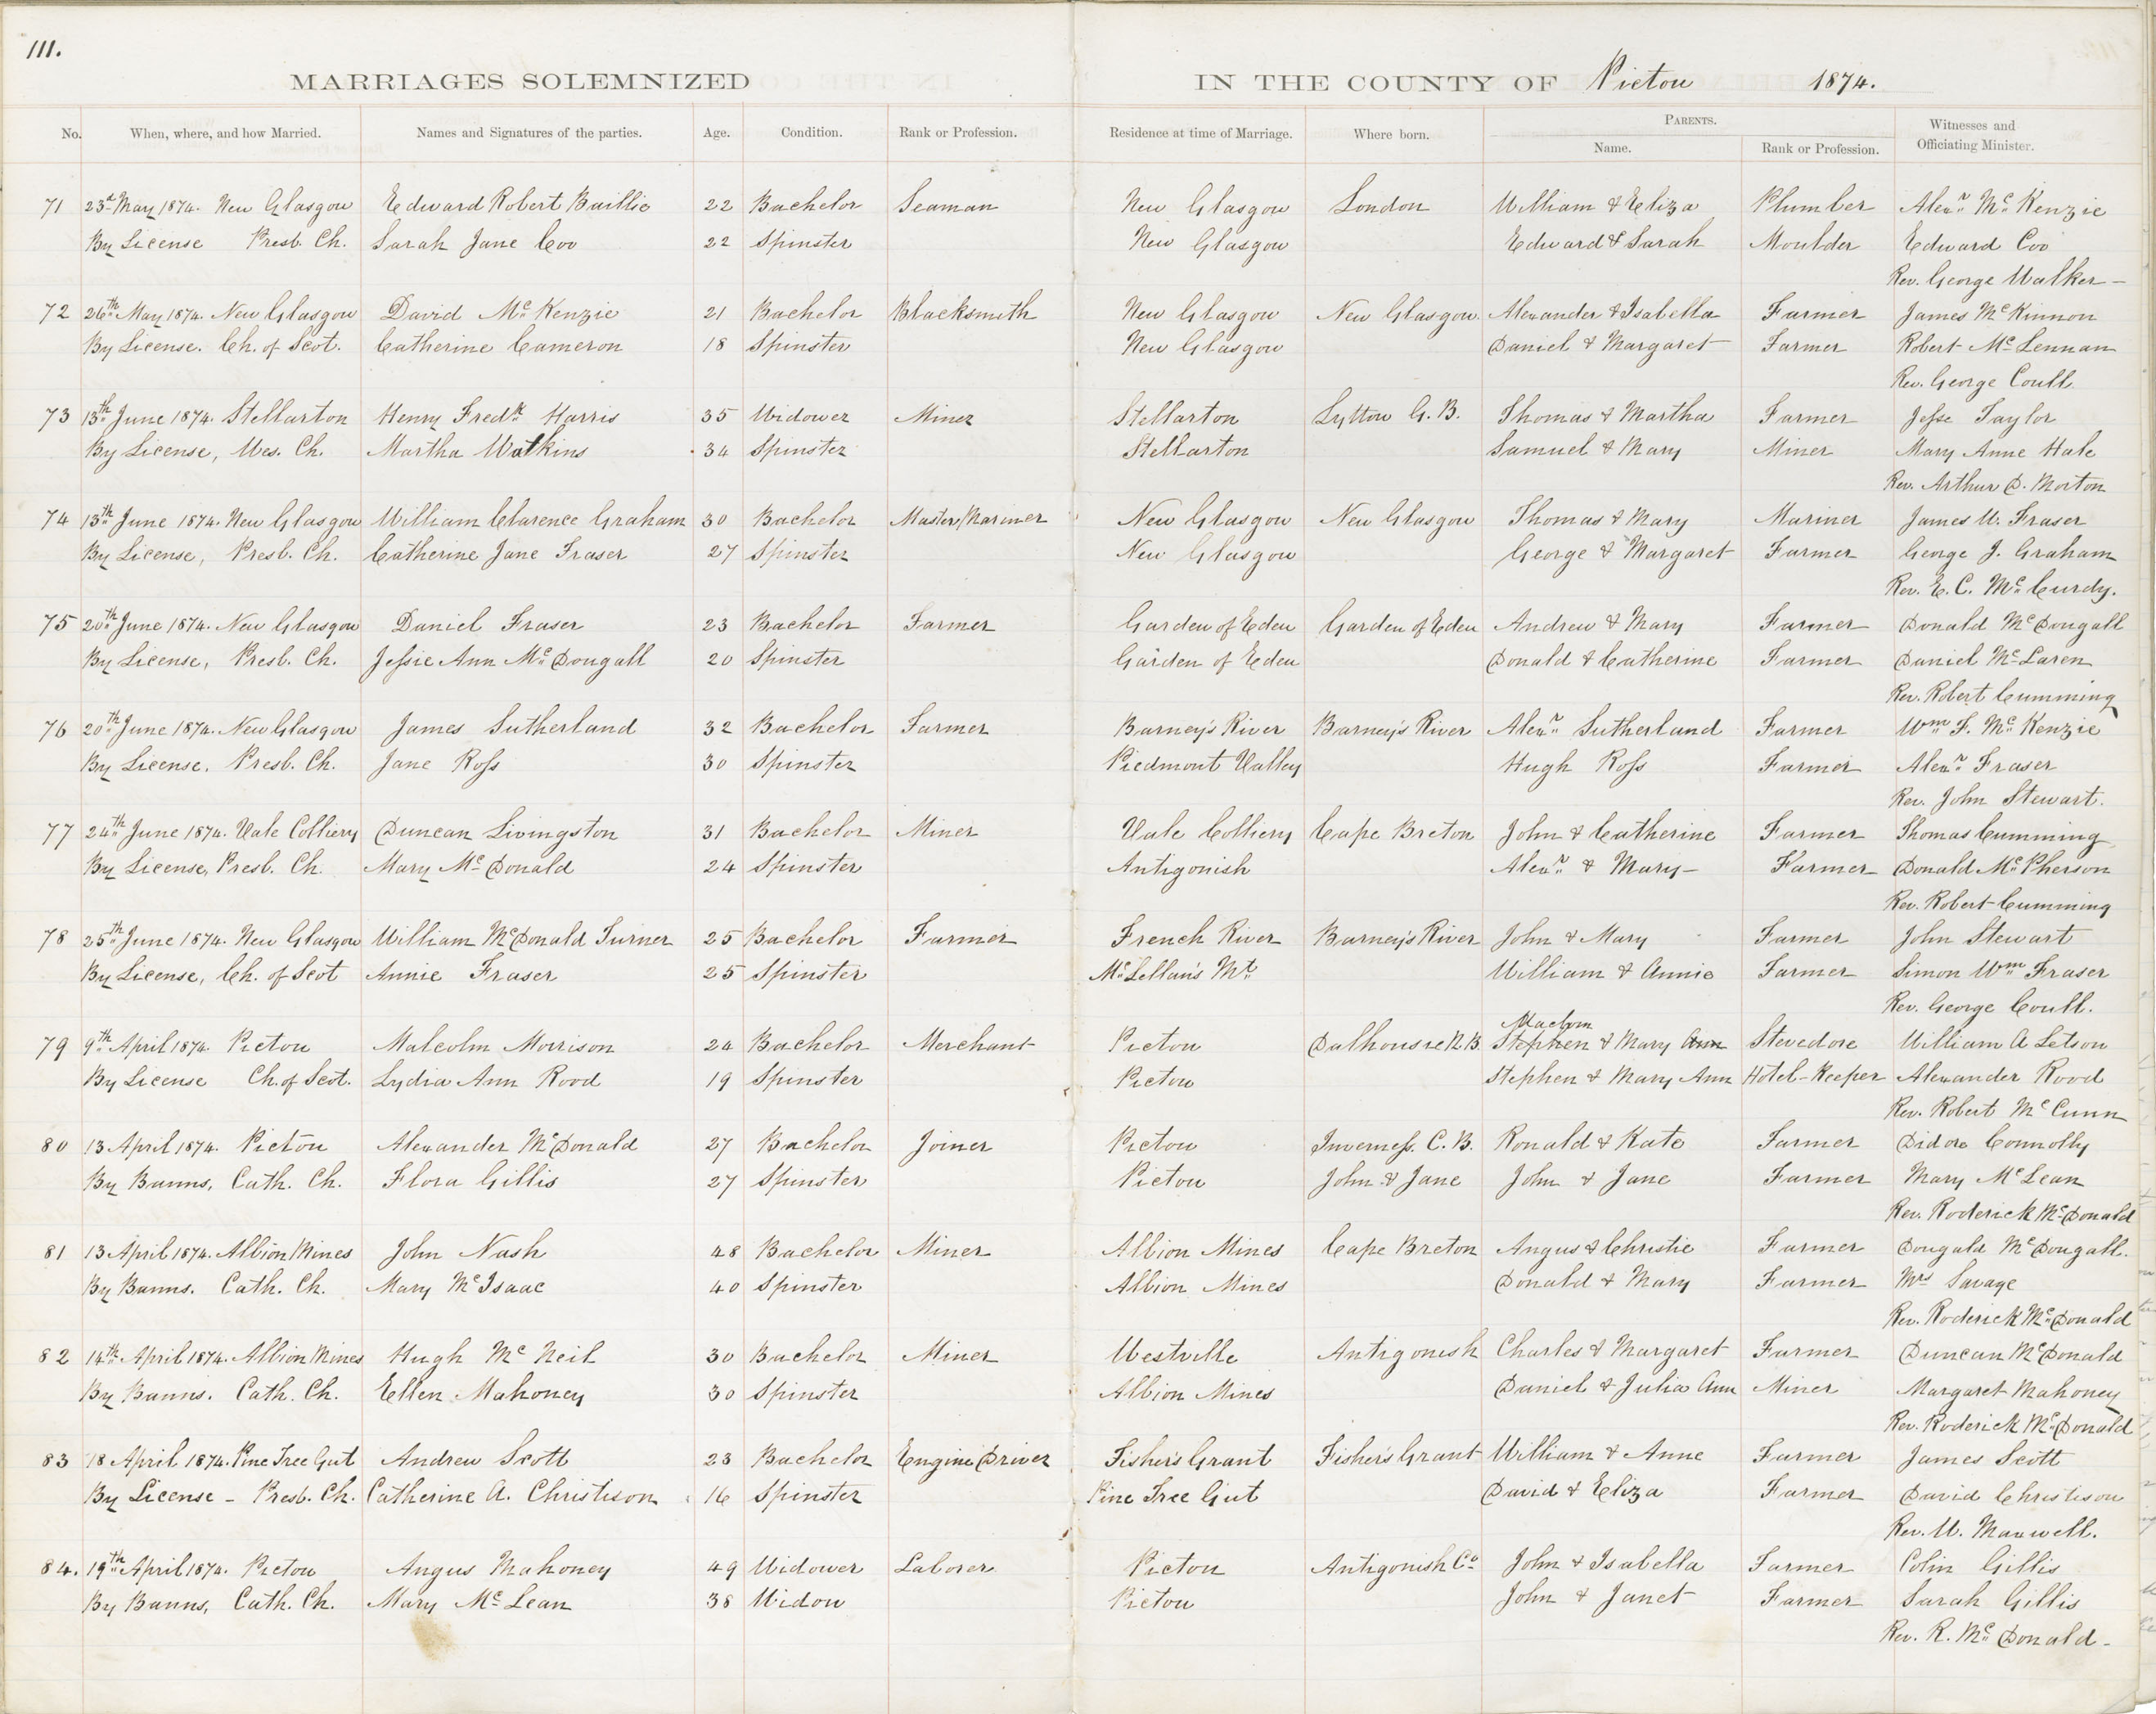 111.
MARRIAGES SOLEMNIZED IN THE COUNTY OF Pictou 1874.
No. When, where, and how Married. Names and Signatures of the parties. Age. Condition. Rank or Profession. Residence at time of Marriage. Where born. PARENTS. Name. Rank or Profession. Witnesses and Officiating Minister.
71 23d May 1874. New Glasgow Edward Robert Baillie 22 Bachelor Seaman New Glasgow London William & Eliza Plumber Alexr. McKenzie
By License Presb. Ch. Sarah Jane Coo 22 Spinster New Glasgow Edward & Sarah Moulder Edward Coo
Rev. George Walker
72 26th May 1874. New Glasgow David McKenzie 21 Bachelor Blacksmith New Glasgow New Glasgow. Alexander & Isabella Farmer James McKinnon
By License. Ch. of Scot. Catherine Cameron 18 Spinster New Glasgow Daniel & Margaret Farmer Robert McLennan
Rev. George Coull
73 13th June 1874. Stellarton Henry Fredk. Harris 35 Widower Miner Stellarton Lytton G. B. Thomas & Martha Farmer Jesse Taylor
By License, Wes. Ch. Martha Watkins 34 Spinster Stellarton Samuel & Mary Miner Mary Anne Hale
Rev. Arthur D. Morton
74 13th June 1874. New Glasgow William Clarence Graham 30 Bachelor Master Mariner New Glasgow New Glasgow Thomas & Mary Mariner James W. Fraser
By License, Presb. Ch. Catherine Jane Fraser 27 Spinster New Glasgow George & Margaret Farmer George J. Graham
Rev. E. C. McCurdy.
75 20th June 1874. New Glasgow Daniel Fraser 23 Bachelor Farmer Garden of Eden Garden of Eden Andrew & Mary Farmer Donald McDougall
By License, Presb. Ch. Jessie Ann McDougall 20 Spinster Garden of Eden Donald & Catherine Farmer Daniel McLaren
Rev. Robert Cumming
76 20th June 1874. New Glasgow James Sutherland 32 Bachelor Farmer Barney's River Barney's River Alexr. Sutherland Farmer Wm. F. McKenzie
By License. Presb. Ch. Jane Ross 30 Spinster Piedmont Valley Hugh Ross Farmer Alexr. Fraser
Rev. John Stewart.
77 24th June 1874. Vale Colliery Duncan Livingston 31 Bachelor Miner Vale Colliery Cape Breton John & Catherine Farmer Thomas Cumming
By License, Presb. Ch. Mary McDonald 24 Spinster Antigonish Alexr. & Mary Farmer Donald McPherson
Rev. Robert Cumming
78 25th June 1874. New Glasgow William McDonald Turner 25 Bachelor Farmer French River Barney's River John & Mary Farmer John Stewart
By License, Ch. of Scot Annie Fraser 25 Spinster McLellan's Mt. William & Annie Farmer Simon Wm. Fraser
Rev. George Coull.
79 9th April 1874. Pictou Malcolm Morrison 24 Bachelor Merchant Pictou Dalhousie N.B. Stephen & Mary Ann Stevedore William A Letson
By License Ch. of Scot. Lydia Ann Rood 19 Spinster Pictou Stephen & Mary Ann Hotel-Keeper Alexander Rood
Rev. Robert McCunn
80 13 April 1874. Pictou Alexander McDonald 27 Bachelor Joiner Pictou Inverness. C. B. Ronald & Kate Farmer Didore Connolly
By Banns, Cath. Ch. Flora Gillis 27 Spinster Pictou John & Jane John & Jane Farmer Mary McLean
Rev. Roderick McDonald
81 13 April 1874. Albion Mines John Nash 48 Bachelor Miner Albion Mines Cape Breton Angus & Christie Farmer Dougald McDougall.
By Banns. Cath. Ch. Mary McIsaac 40 Spinster Albion Mines Donald & Mary Farmer Mrs Savage
Rev. Roderick McDonald
82 14th April 1874. Albion Mines Hugh McNeil 30 Bachelor Miner Westville Antigonish Charles & Margaret Farmer Duncan McDonald
By Banns. Cath. Ch. Ellen Mahoney 30 Spinster Albion Mines Daniel & Julia Ann Miner Margaret Mahoney
Rev. Roderick McDonald
83 18 April 1874. Pine Tree Gut Andrew Scott 23 Bachelor Engine Driver Fisher's Grant Fisher's Grant William & Anne Farmer James Scott
By License - Presb. Ch. Catherine A. Christison 16 Spinster Pine Tree Gut David & Eliza Farmer David Christison
Rev. W. Maxwell.
84. 19th April 1874. Pictou Angus Mahoney 49 Widower Laborer Pictou Antigonish Co. John & Isabella Farmer Colin Gillis
By Banns, Cath. Ch. Mary McLean 38 Widow Pictou John & Janet Farmer Sarah Gillis
Rev. R. McDonald